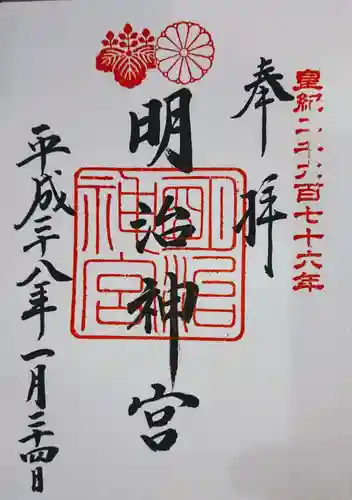 皇紀二千六百七十六年
奉拝
明治神宮
明治神宮
平成二十八年一月二十四日